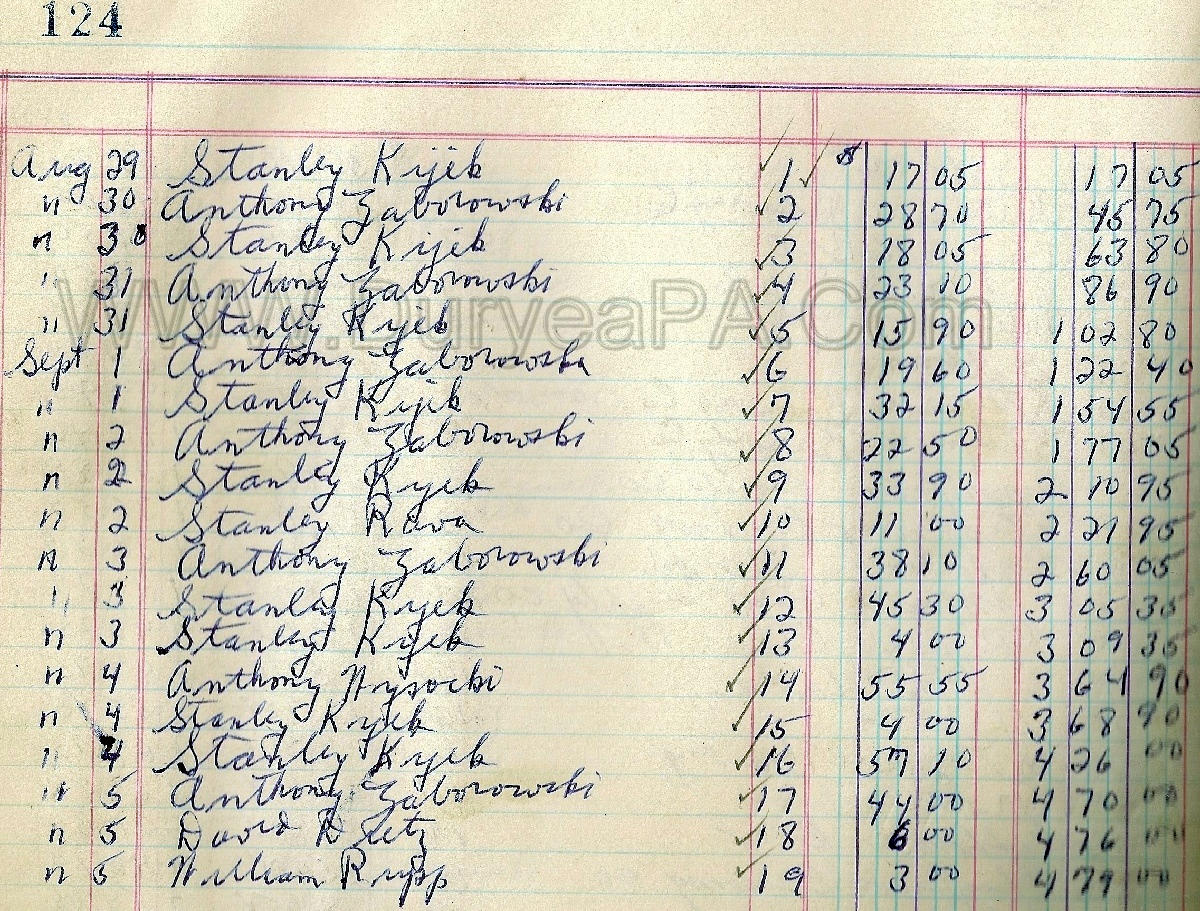 124
Aug 29 Stanley Kijek 1 $ 17 05 17 05
" 30 Anthony Zaborowski 2 28 70 45 75
" 30 Stanley Kijek 3 18 05 63 80
" 31 Anthony Zaborowski 4 23 10 86 90
www.DuryeaPA.Com
" 31 Stanley Kijek 5 15 90 1 02 80
Sept 1 Anthony Zaborowski 6 19 60 1 22 40
" 1 Stanley Kijek 7 32 15 1 54 55
" 2 Anthony Zaborowski 8 22 50 1 77 05
" 2 Stanley Kyjek 9 33 90 2 10 95
" 2 Stanley Rava 10 11 00 2 21 95
" 3 Anthony Zaborowski 11 38 10 2 60 05
" 3 Stanley Kyjek 12 45 30 3 05 35
" 3 Stanley Kyjek 13 4 00 3 09 35
" 4 Anthony Wysocki 14 55 55 3 64 90
" 4 Stanley Kyjek 15 4 00 3 68 90
" 4 Stanley Kyjek 16 57 10 4 26 00
" 5 Anthony Zaborowski 17 44 00 4 70 00
" 5 David Dietz 18 6 00 4 76 00
" 5 William Ripp 19 3 00 4 79 00